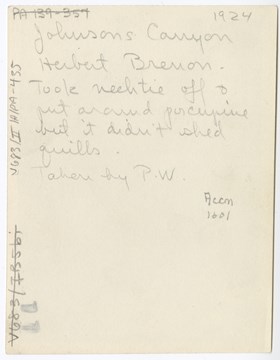 PA 139-354
1924
Johnsons Canyon
Herbert Brenon.
Took necktie off &
put around porcupine
but it didn't shed
quills.
Taken by P.W.
Accn
1601
V683/III A/1/PA-455
V683/I B5bi